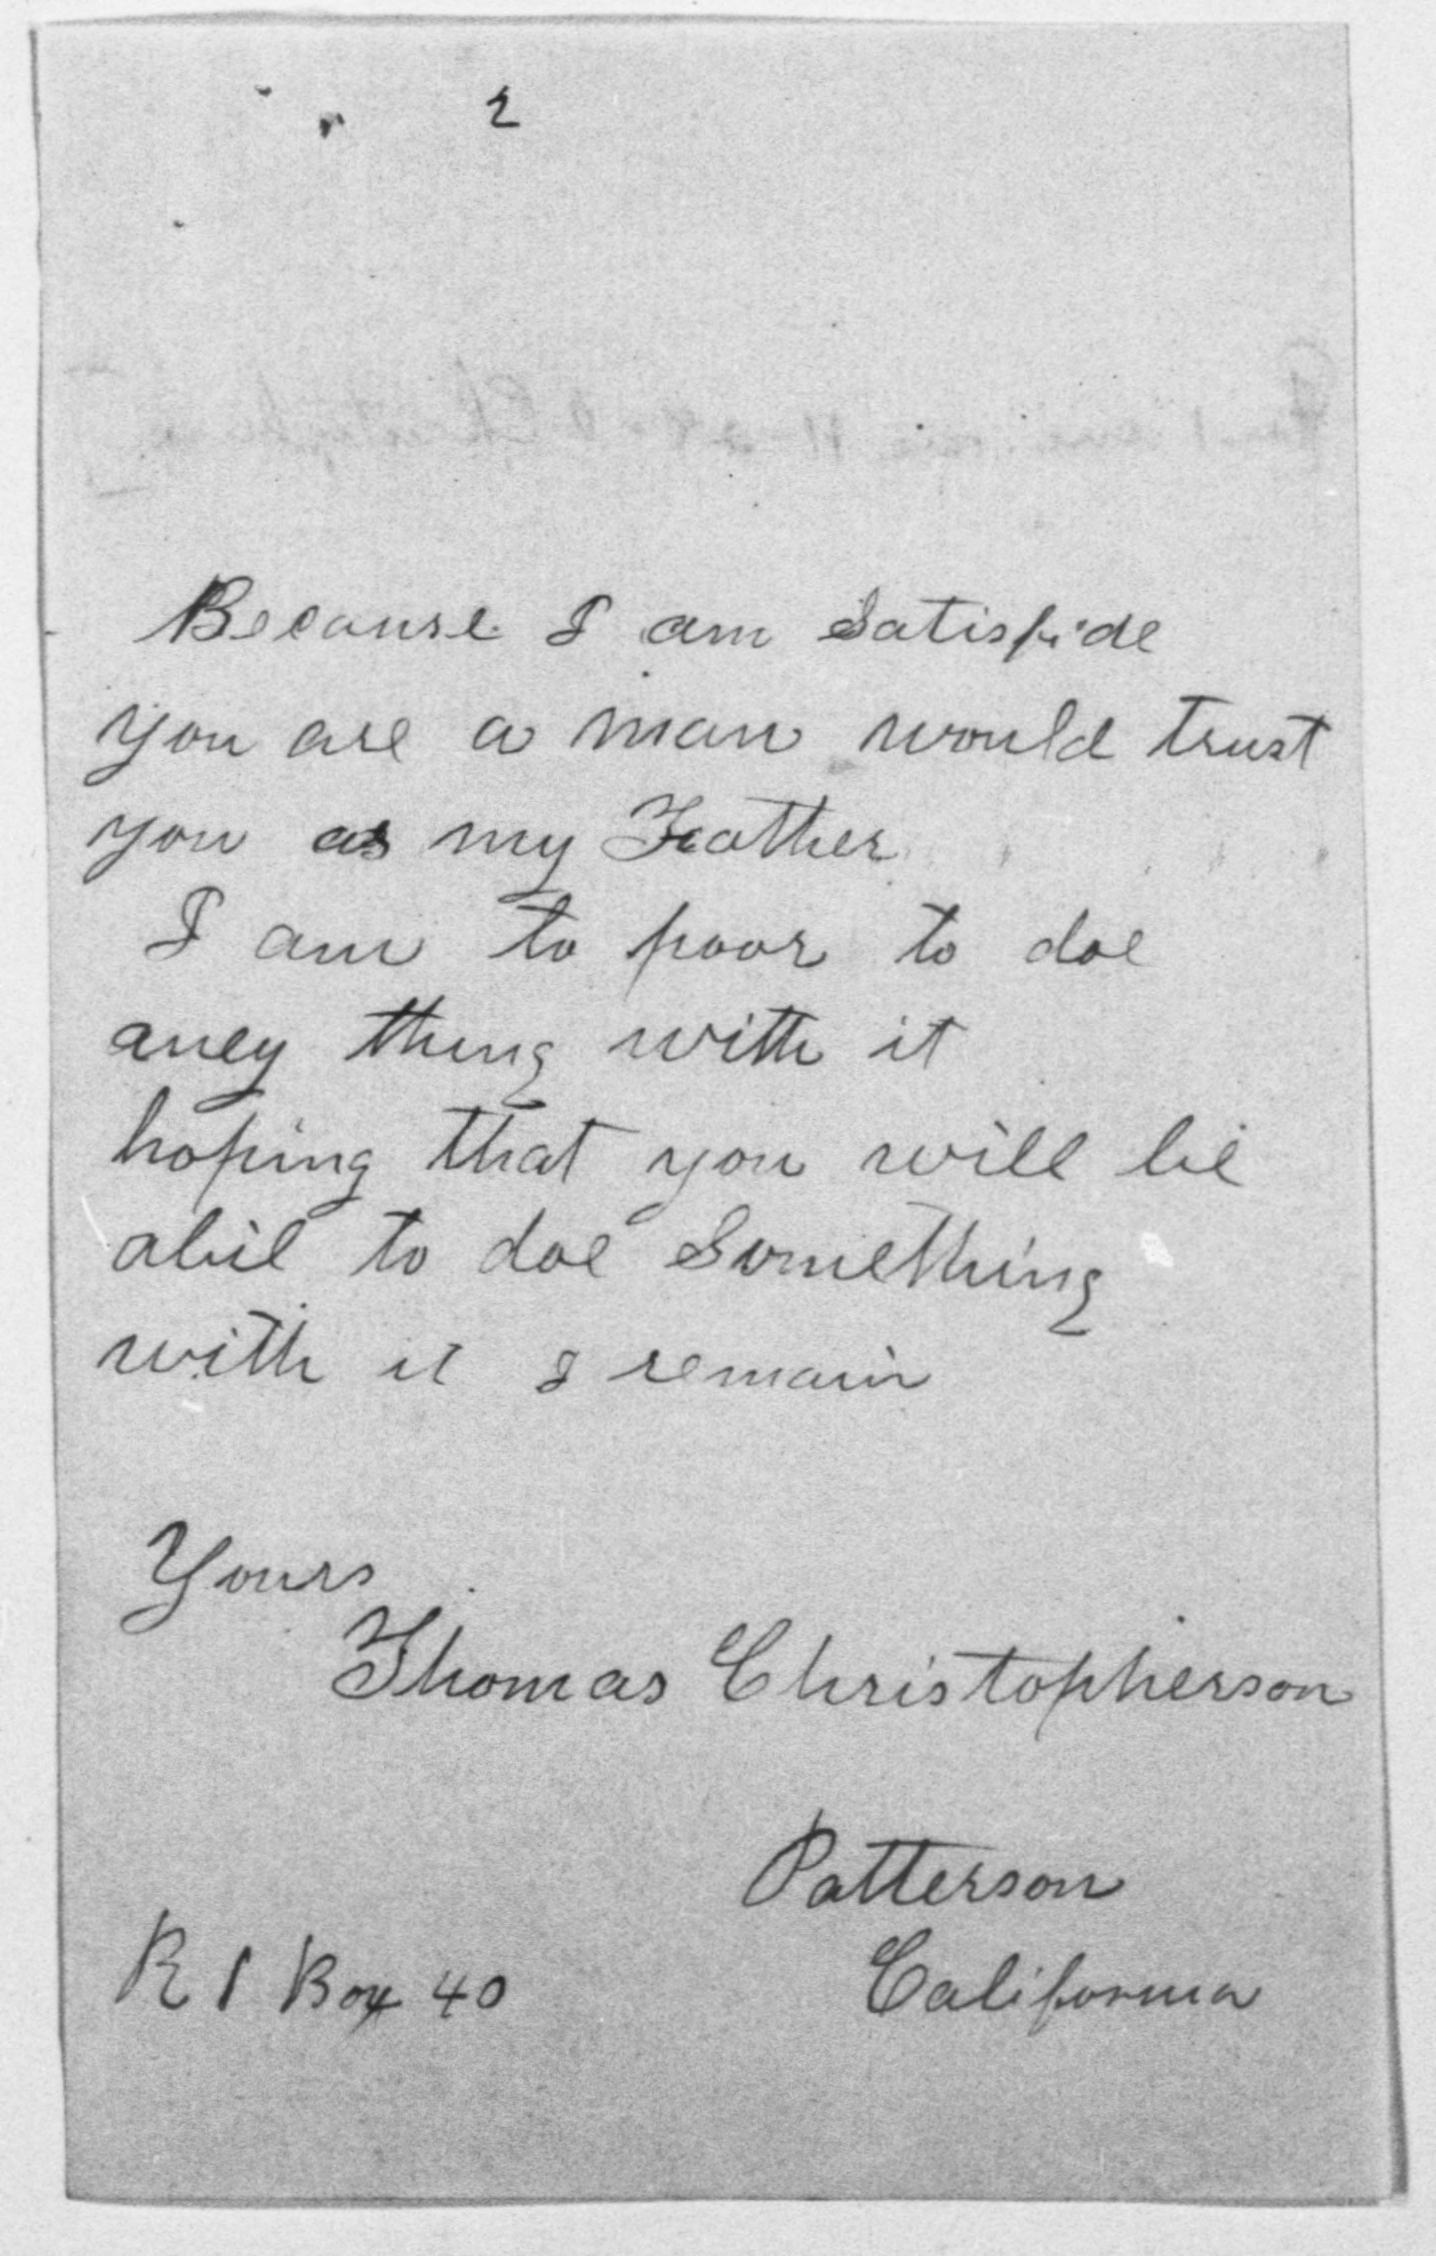 2
Because I am Satisfide
you are a man would trust
you as my Father
I am to poor to doe
aney thing with it
hoping that you will be
abil to doe Something
with it I remain
Yours
Thomas Christopherson
Patterson
R 1 Box 40 California